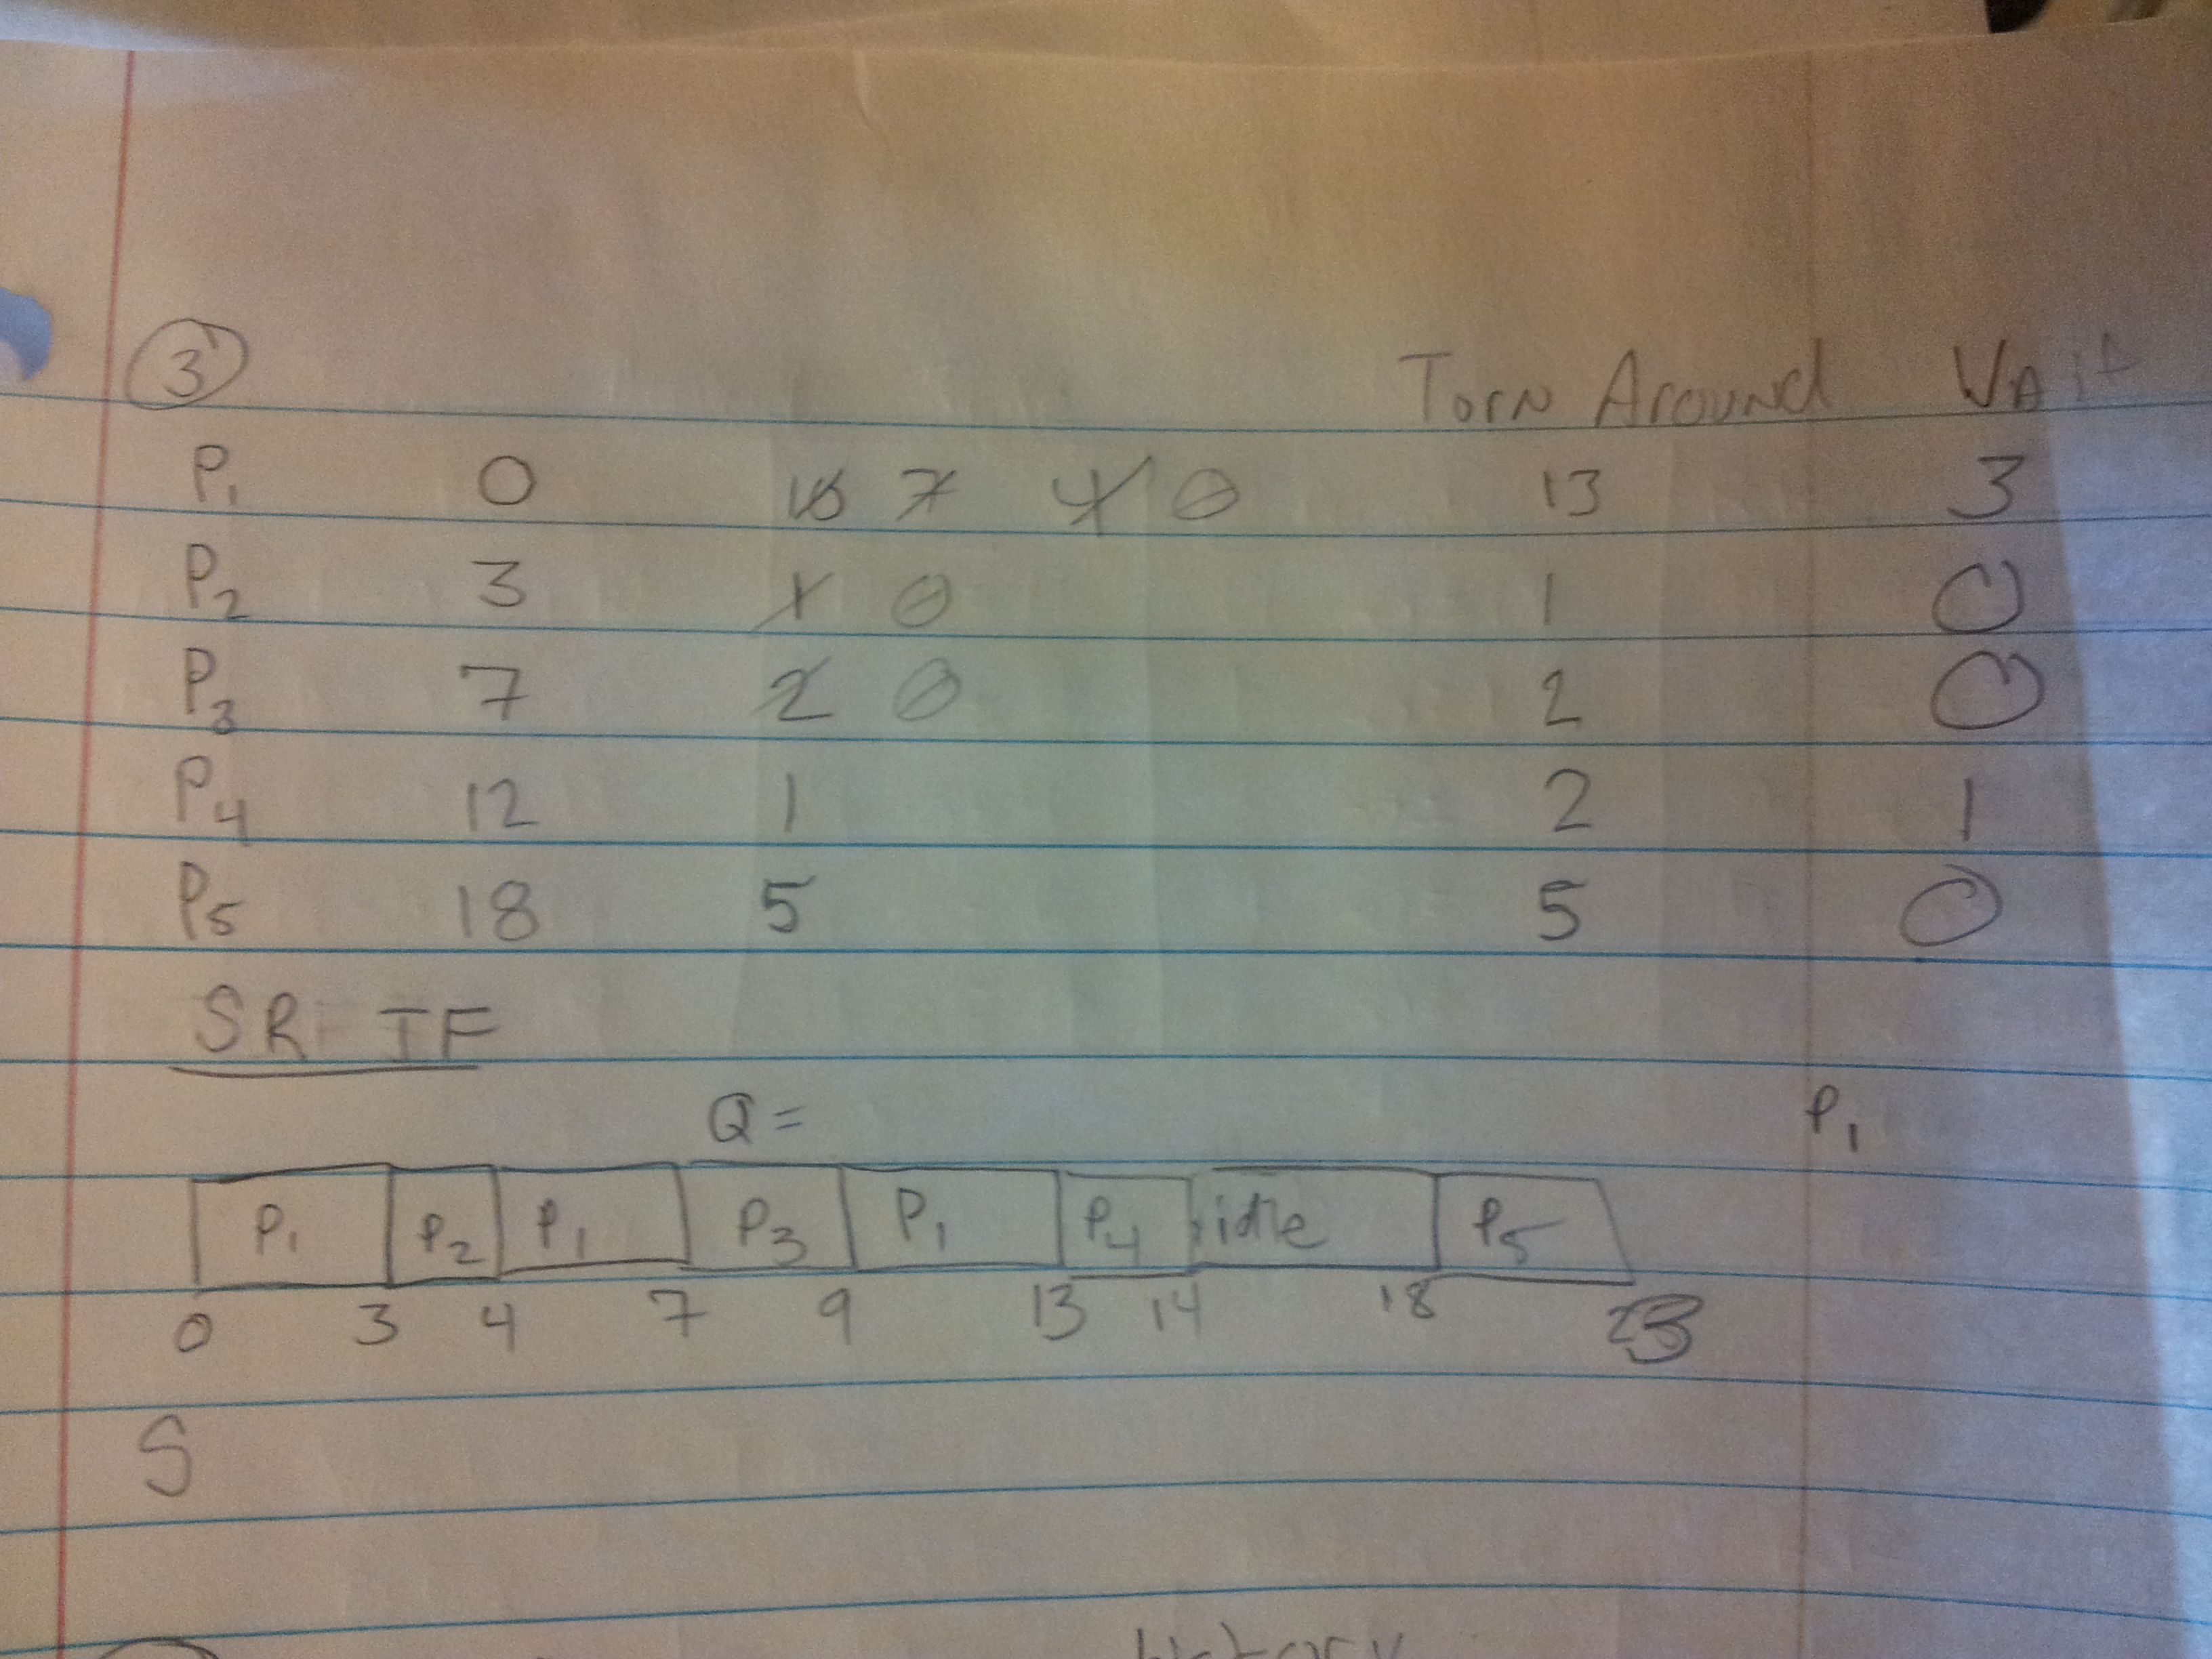 3
Torn Around Wait
P1 0 10 7 4 0 13 3
P2 3 1 0 1 0
P3 7 2 0 2 0
P4 12 1 2 1
P5 18 5 5 0
SR TF
Q = P1
P1 P2 P1 P3 P1 P4 idle P5
0 3 4 7 9 13 14 18 23
S
history